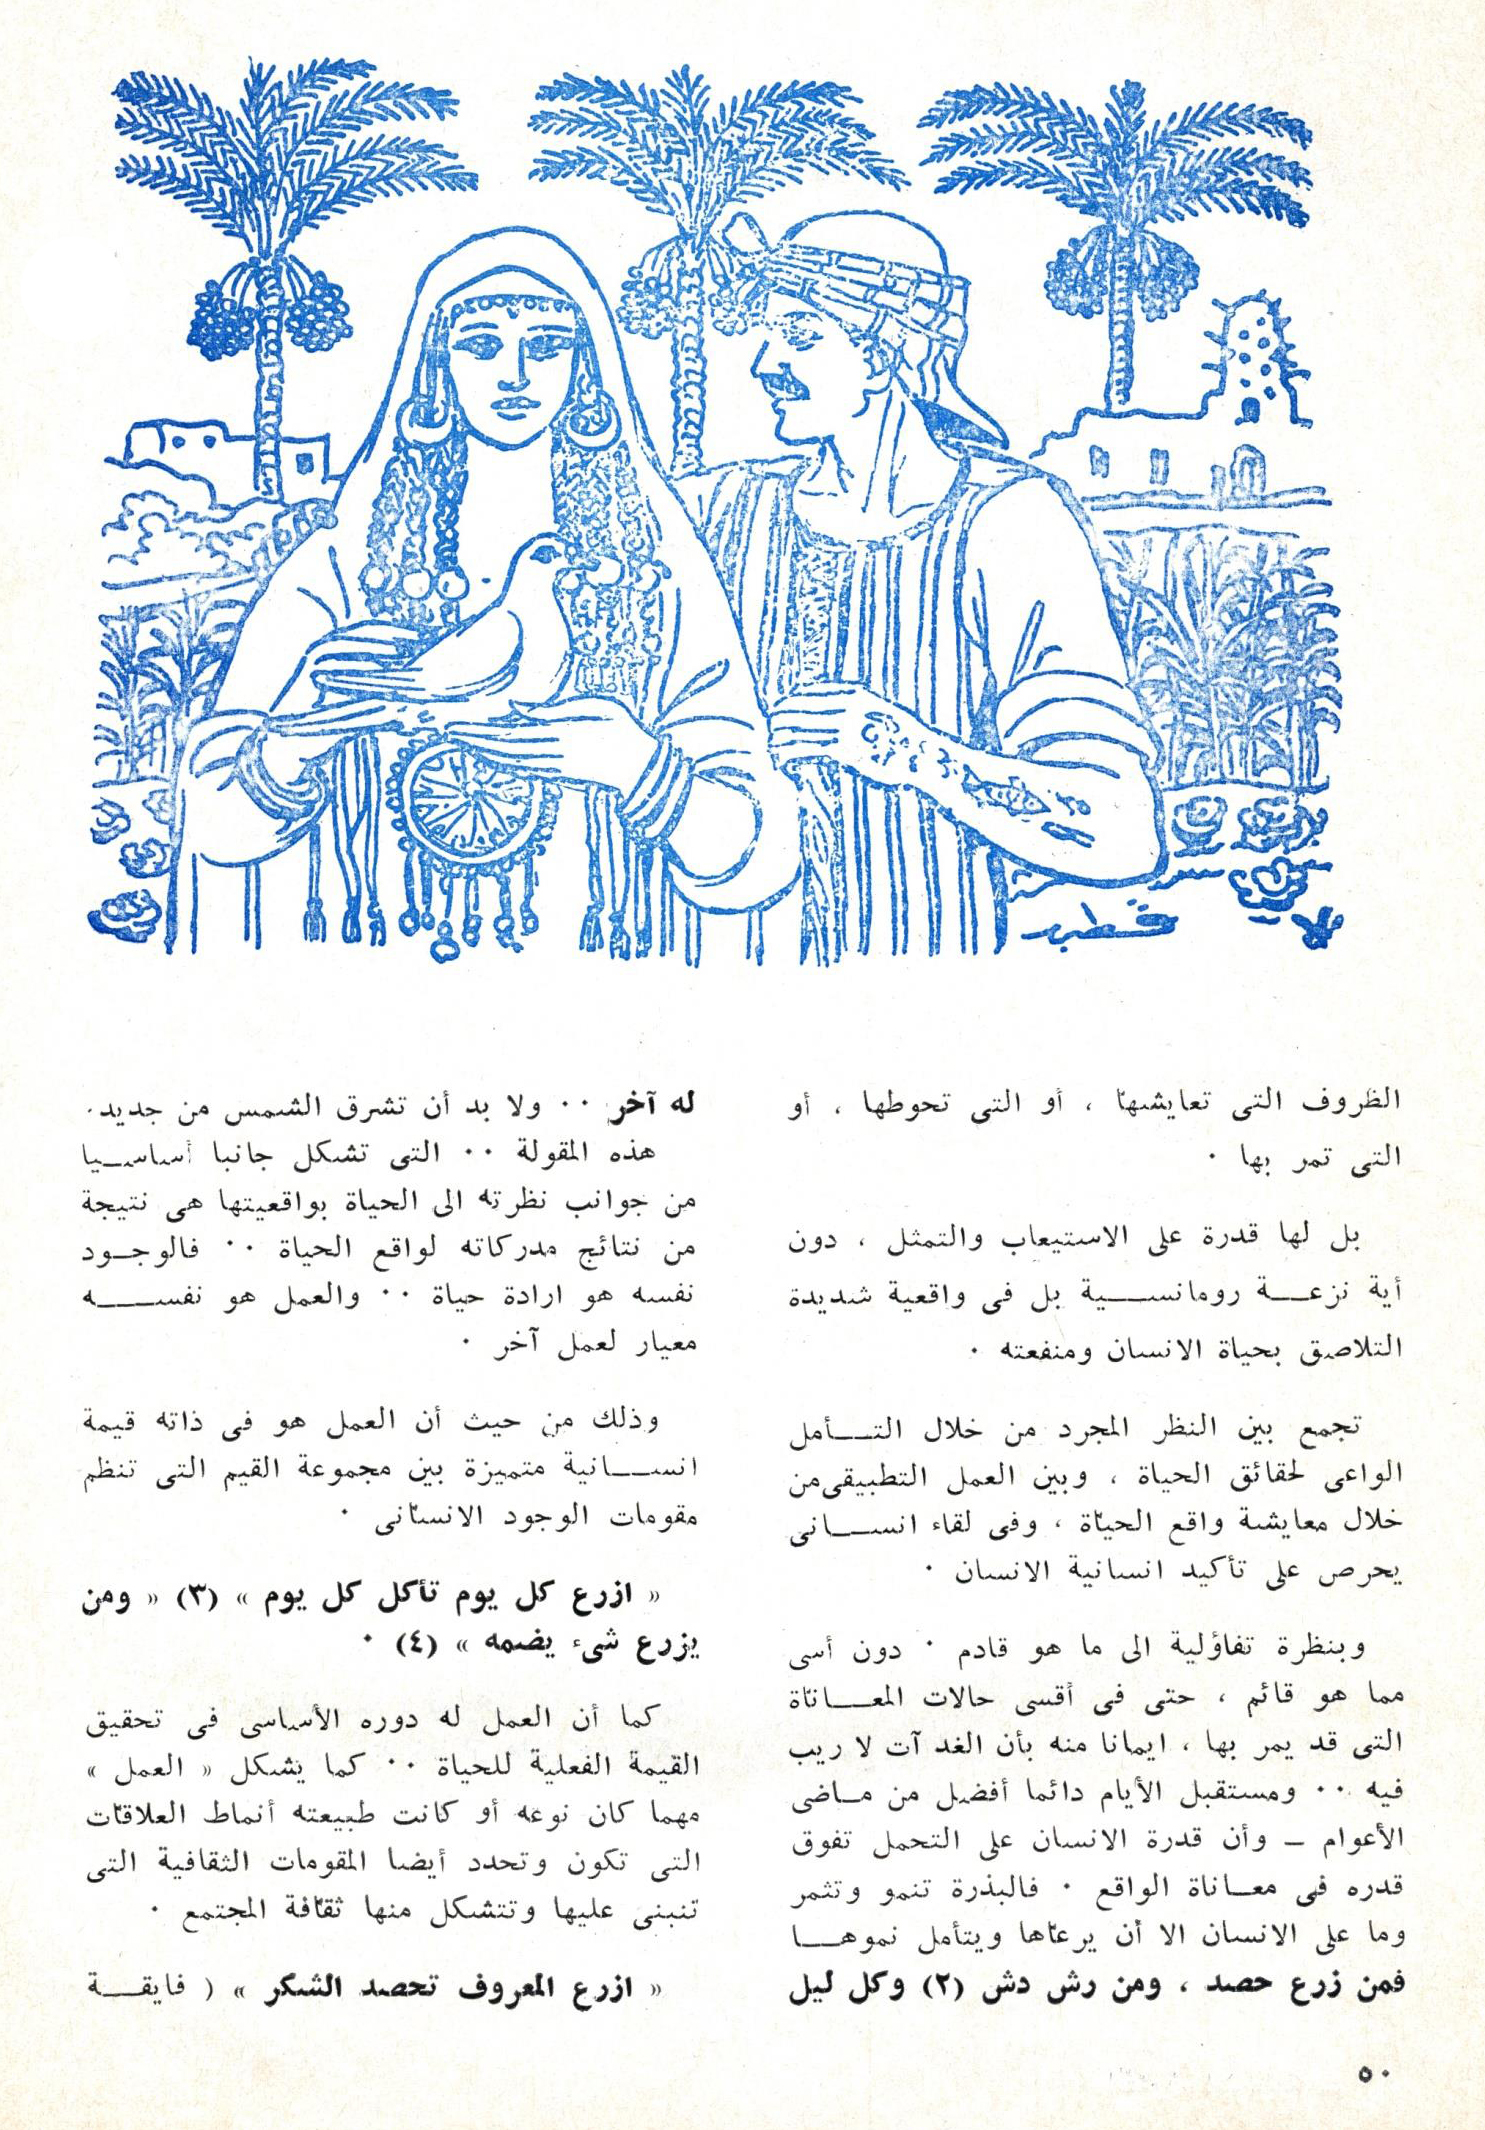 قطب
الظروف التى تعايشها ، أو التى تحوطها ، أو
التى تمر بها ٠
بل لها قدرة على الاستيعاب والتمثل ، دون
أية نزعـــة رومانســـية بل فى واقعية شديدة
التلاصق بحياة الانسان ومنفعته ٠
تجمع بين النظر المجرد من خلال التـــأمل
الواعى لحقائق الحياة ، وبين العمل التطبيقى من
خلال معايشة واقع الحياة ، وفى لقاء انســـانى
يحرص على تأكيد انسانية الانسان ٠
وبنظرة تفاؤلية الى ما هو قادم ٠ دون أسى
مما هو قائم ، حتى فى أقسى حالات المعـــاناة
التى قد يمر بها ، ايمانا منه بأن الغد آت لا ريب
فيه ٠٠ ومستقبل الأيام دائما أفضل من مـاضى
الأعوام – وأن قدرة الانسان على التحمل تفوق
قدره فى معـاناة الواقع ٠ فالبذرة تنمو وتثمر
وما على الانسان الا أن يرعاها ويتأمل نموهـــا
فمن زرع حصد ، ومن رش دش (٢) وكل ليل
له آخر ٠٠ ولا بد أن تشرق الشمس من جديد.
هذه المقولة ٠٠ التى تشكل جانبا أساســيا
من جوانب نظرته الى الحياة بواقعيتها هى نتيجة
من نتائج مدركاته لواقع الحياة ٠٠ فالوجــود
نفسه هو ارادة حياة ٠٠ والعمل هو نفســـه
معيار لعمل آخر ٠
وذلك من حيث أن العمل هو فى ذاته قيمة
انســـانية متميزة بين مجموعة القيم التى تنظم
مقومات الوجود الانسانى ٠
« ازرع كل يوم تأكل كل يوم » (٣) « ومن
يزرع شىء يضمه » (٤) ٠
كما أن العمل له دوره الأساسى فى تحقيق
القيمة الفعلية للحياة ٠٠ كما يشكل « العمل »
مهما كان نوعه أو كانت طبيعته أنماط العلاقات
التى تكون وتحدد أيضا المقومات الثقافية التى
تنبنى عليها وتتشكل منها ثقافة المجتمع ٠
« ازرع المعروف تحصد الشكر » ( فايقـــة
٥٠